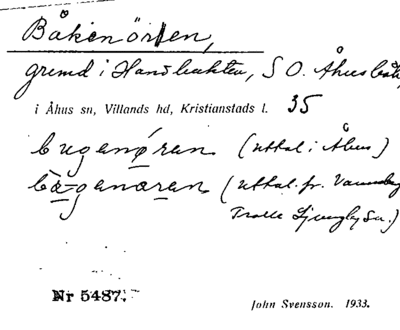 Båkenören,
grund i Hanöbukten, SO. Åhus
i Åhus sn, Villands hd, Kristianstads l. 35
bugenøren (uttal i Åhus)
bågenæren (uttal fr. Vanneberga
Trolle Ljungby sn.)
Nr 5487.
John Svensson. 1933.